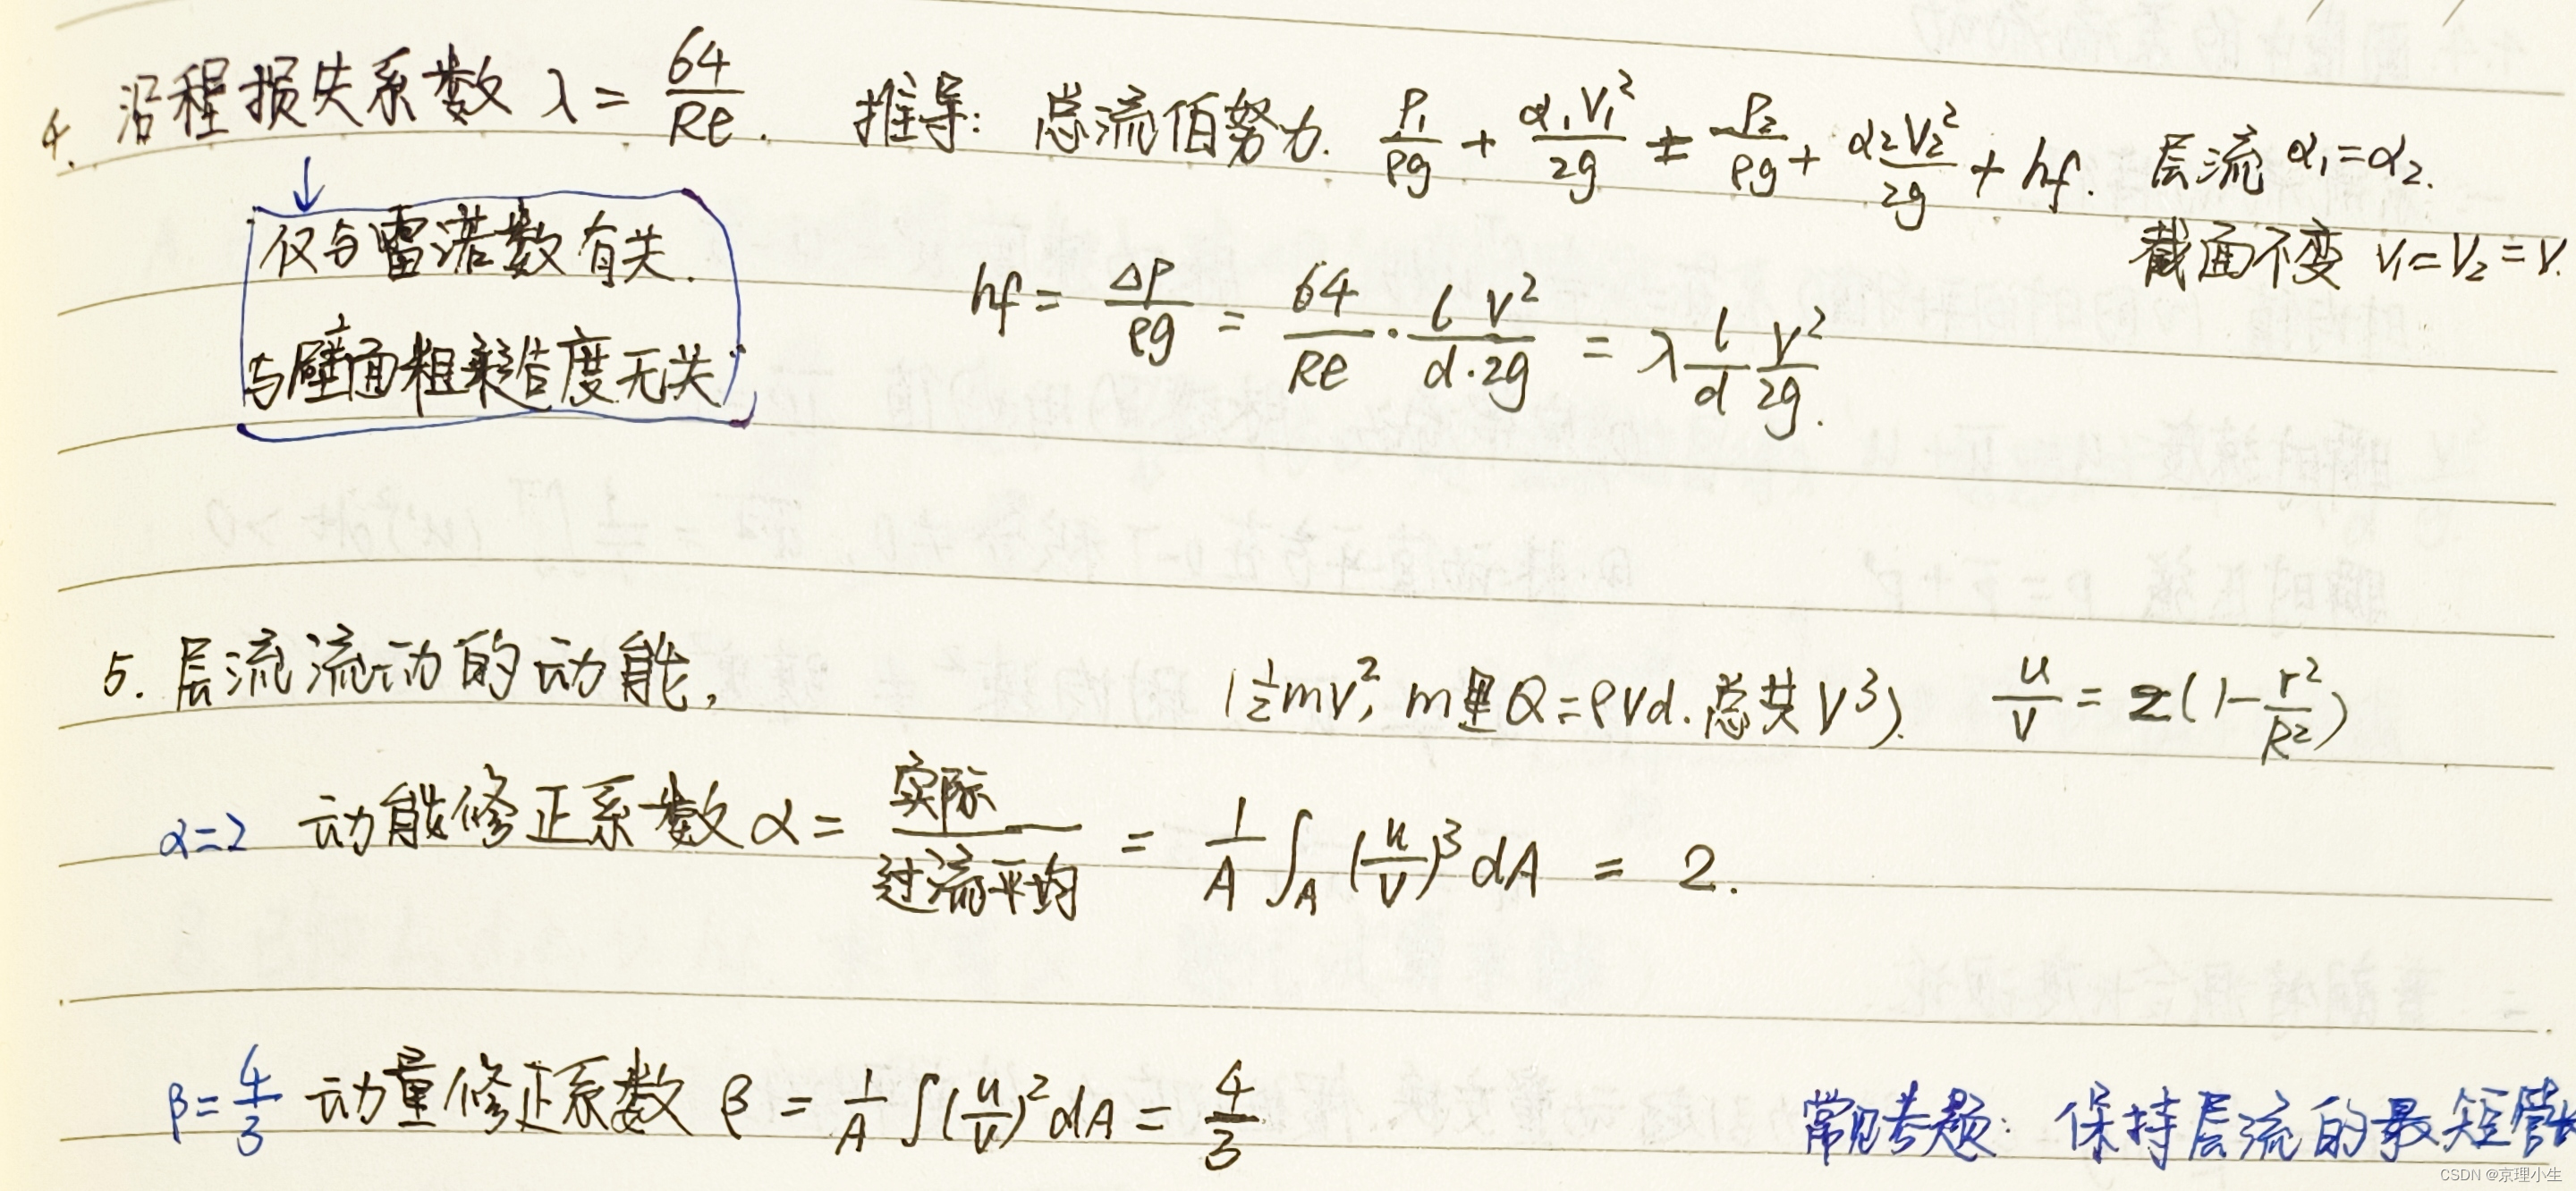 4. 沿程损失系数 λ = 64/Re. 推导: 总流伯努力. P₁/ρg + α₁V₁²/2g = P₂/ρg + α₂V₂²/2g + hf. 层流 α₁=α₂.
仅与雷诺数有关. 截面不变 V₁=V₂=V.
与壁面粗糙度无关 hf = ΔP/ρg = 64/Re · l V²/d·2g = λ l/d V²/2g.
5. 层流流动的动能, (½mv², m是Q=ρVd.总共V³). u/V = 2(1-r²/R²)
α=2 动能修正系数 α = 实际/过流平均 = 1/A ∫A (u/V)³ dA = 2.
β=4/3 动量修正系数 β = 1/A ∫(u/V)² dA = 4/3 常见考题: 保持层流的最短管长
CSDN @京理小生